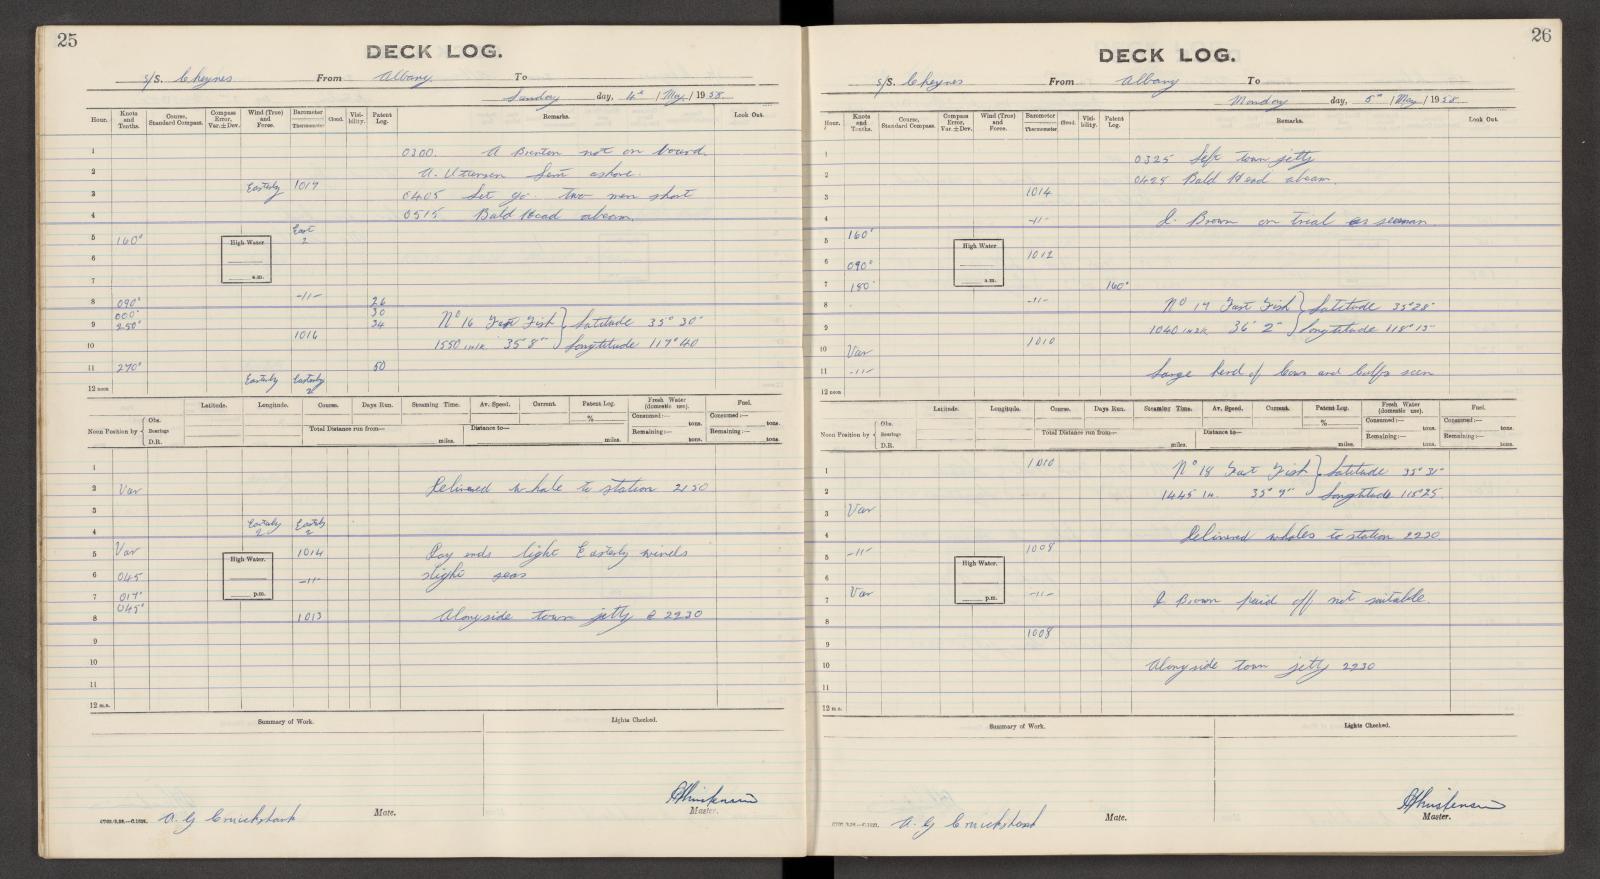 25
DECK LOG.
S/S. Cheynes From Albany To
Sunday day, 4th / May / 1958
Hour. Knots and Tenths. Course, Standard Compass. Compass Error, Var. ± Dev. Wind (True) and Force. Barometer Thermometer Cloud. Visibility. Patent Log. Remarks. Look Out.
1 0300. A Brenton not on board.
2 sent ashore.
3 Easterly 1017 0405 Let go two men short
4 0515 Bald Head abeam.
5 160° East 2
High Water
6
a.m.
7
8 090° -11- 26
000° 30
9 250° 34 No 16 Fast Fish } Latitude 35° 30"
1016
10 1550 35' 8" } Longtitude 117° 40
11 270° 50
12 noon Easterly Easterly 2
Latitude. Longitude. Course. Days Run. Steaming Time. Av. Speed. Current. Patent Log. Fresh Water (domestic use). Fuel.
Noon Position by { Obs. Bearings D.R.
% Consumed:— tons. Consumed:— tons.
Total Distance run from— miles. Distance to— miles. Remaining:— tons. Remaining:— tons.
1
2 Var Delivered whale to station 2130
3
4 Easterly 2 Easterly 2
5 Var 1014 Day ends light Easterly winds
High Water.
6 045 -11- slight seas
7 017°
p.m.
045°
8 1013 Alongside town jetty @ 2230
9
10
11
12 m.n.
Summary of Work. Lights Checked.
A. G Cruickshank Mate.
Christensen
Master.
26
DECK LOG.
S/S. Cheynes From Albany To
Monday day, 5th / May / 1958
Hour. Knots and Tenths. Course, Standard Compass. Compass Error, Var. ± Dev. Wind (True) and Force. Barometer Thermometer Cloud. Visibility. Patent Log. Remarks. Look Out.
1 0325 Left town jetty
2 0425 Bald Head abeam.
3 1014
4 -11- Brown on trial as seaman.
5 160°
High Water
6 090° 1012
a.m.
7 180° 160°
8 -11- No 17 Fast Fish } Latitude 35° 28"
9 1040 36' 2" } Longtitude 118° 15"
10 Var 1010
11 -11- Large herd of Cows and Calfs seen
12 noon
Latitude. Longitude. Course. Days Run. Steaming Time. Av. Speed. Current. Patent Log. Fresh Water (domestic use). Fuel.
Noon Position by { Obs. Bearings D.R.
% Consumed:— tons. Consumed:— tons.
Total Distance run from— miles. Distance to— miles. Remaining:— tons. Remaining:— tons.
1 1010 No 18 Fast Fish } Latitude 35° 31"
2 1445 35' 9" } Longtitude 118° 25
3 Var
4 Delivered whales to station 2230
5 -11- 1008
High Water.
6
7 Var -11- Brown paid off not suitable.
p.m.
8
9 1008
10 Alongside town jetty 2230
11
12 m.n.
Summary of Work. Lights Checked.
A. G Cruickshank Mate.
Christensen
Master.